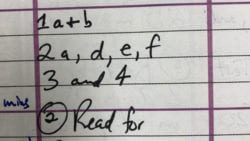 1 a+b
2 a, d, e, f
3 and 4
② Read for